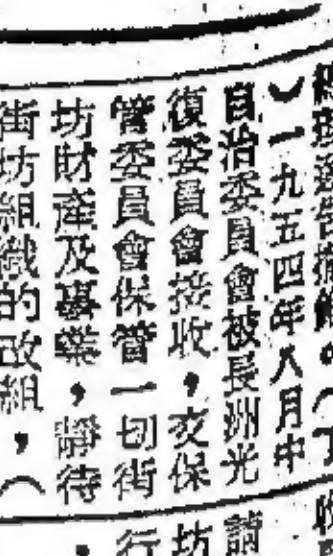 ）一九五四年八月中
自治委員會被長洲光
復委員會接收，交保
管委員會保管一切街
坊財產及事業，靜待
街坊組織的改組，（
請
坊
行